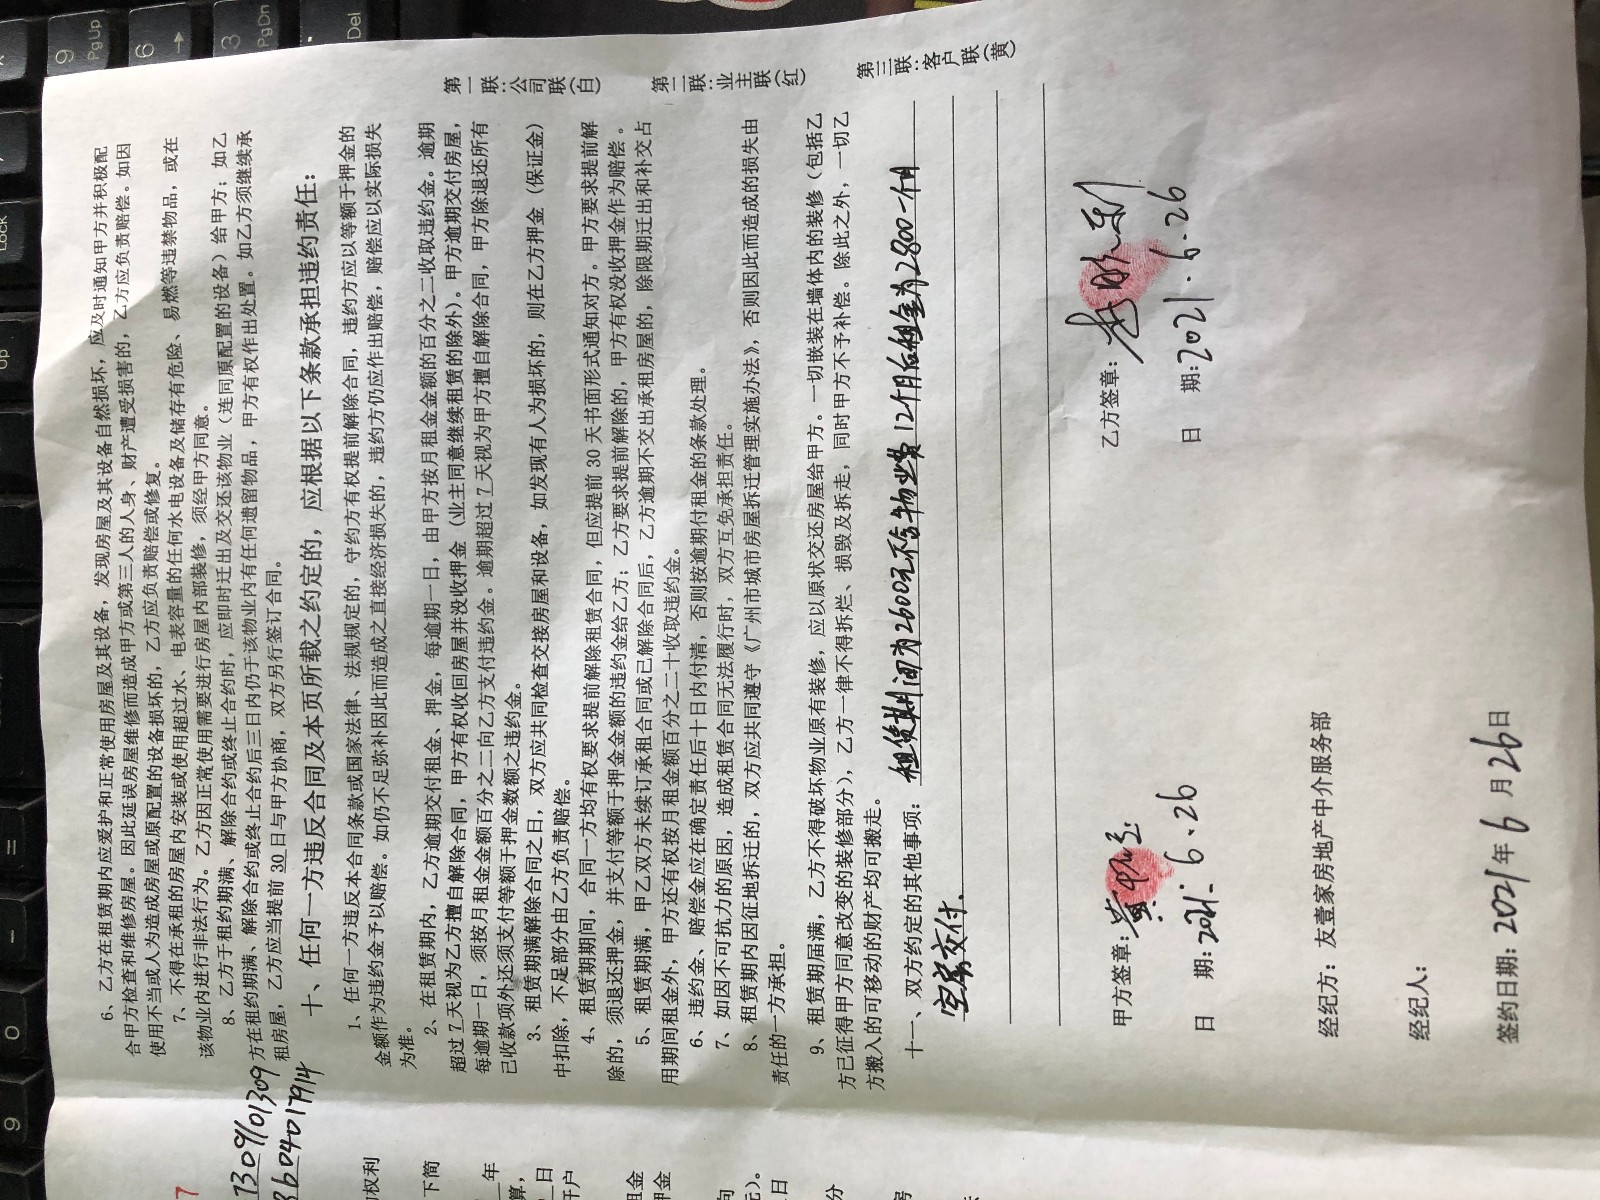 6、乙方在租赁期内应爱护和正常使用房屋及其设备，发现房屋及其设备自然损坏，应及时通知甲方并积极配
合甲方检查和维修房屋。因此延误房屋维修而造成甲方或第三人的人身、财产遭受损害的，乙方应负责赔偿。如因
使用不当或人为造成房屋或原配置的设备损坏的，乙方应负责赔偿或修复。
7、不得在承租的房屋内安装或使用超过水、电表容量的任何水电设备及储存有危险、易燃等违禁物品，或在
该物业内进行非法行为。乙方因正常使用需要进行房屋内部装修，须经甲方同意。
8、乙方于租约期满、解除合约或终止合约时，应即时迁出及交还该物业（连同原配置的设备）给甲方；如乙
方在租约期满、解除合约或终止合约后三日内仍于该物业内有任何遗留物品，甲方有权作出处置。如乙方须继续承
租房屋，乙方应当提前 30 日与甲方协商，双方另行签订合同。
十、任何一方违反合同及本页所载之约定的，应根据以下条款承担违约责任：
1、任何一方违反本合同条款或国家法律、法规规定的，守约方有权提前解除合同，违约方应以等额于押金的
金额作为违约金予以赔偿。如仍不足弥补因此而造成之直接经济损失的，违约方仍应作出赔偿，赔偿应以实际损失
为准。
2、在租赁期内，乙方逾期交付租金、押金，每逾期一日，由甲方按月租金金额的百分之二收取违约金。逾期
超过 7 天视为乙方擅自解除合同，甲方有权收回房屋并没收押金（业主同意继续租赁的除外）。甲方逾期交付房屋，
每逾期一日，须按月租金金额百分之二向乙方支付违约金。逾期超过 7 天视为甲方擅自解除合同，甲方除退还所有
已收款项外还须支付等额于押金数额之违约金。
3、租赁期满解除合同之日，双方应共同检查交接房屋和设备，如发现有人为损坏的，则在乙方押金（保证金）
中扣除，不足部分由乙方负责赔偿。
4、租赁期期间，合同一方均有权要求提前解除租赁合同，但应提前 30 天书面形式通知对方。甲方要求提前解
除的，须退还押金，并支付等额于押金金额的违约金给乙方；乙方要求提前解除的，甲方有权没收押金作为赔偿。
5、租赁期满，甲乙双方未续订承租合同或已解除合同后，乙方逾期不交出承租房屋的，除限期迁出和补交占
用期间租金外，甲方还有权按月租金额百分之二十收取违约金。
6、违约金、赔偿金应在确定责任后十日内付清，否则按逾期付租金的条款处理。
7、如因不可抗力的原因，造成租赁合同无法履行时，双方互免承担责任。
8、租赁期内因征地拆迁的，双方应共同遵守《广州市城市房屋拆迁管理实施办法》，否则因此而造成的损失由
责任的一方承担。
9、租赁期届满，乙方不得破坏物业原有装修，应以原状交还房屋给甲方。一切嵌装在墙体内的装修（包括乙
方已征得甲方同意改变的装修部分），乙方一律不得拆烂、损毁及拆走，同时甲方不予补偿。除此之外，一切乙
方搬入的可移动的财产均可搬走。
十一、双方约定的其他事项：租赁期间为2600元不含物业费 12个月后租金为2800一个月
空房交付.
甲方签章：黄
日 期：2021.6.26
乙方签章：李
日 期：2021.6.26
经纪方：友壹家房地产中介服务部
经纪人：
签约日期：2021年 6 月 26日
第一联：公司联（白）
第二联：业主联（红）
第三联：客户联（黄）
7